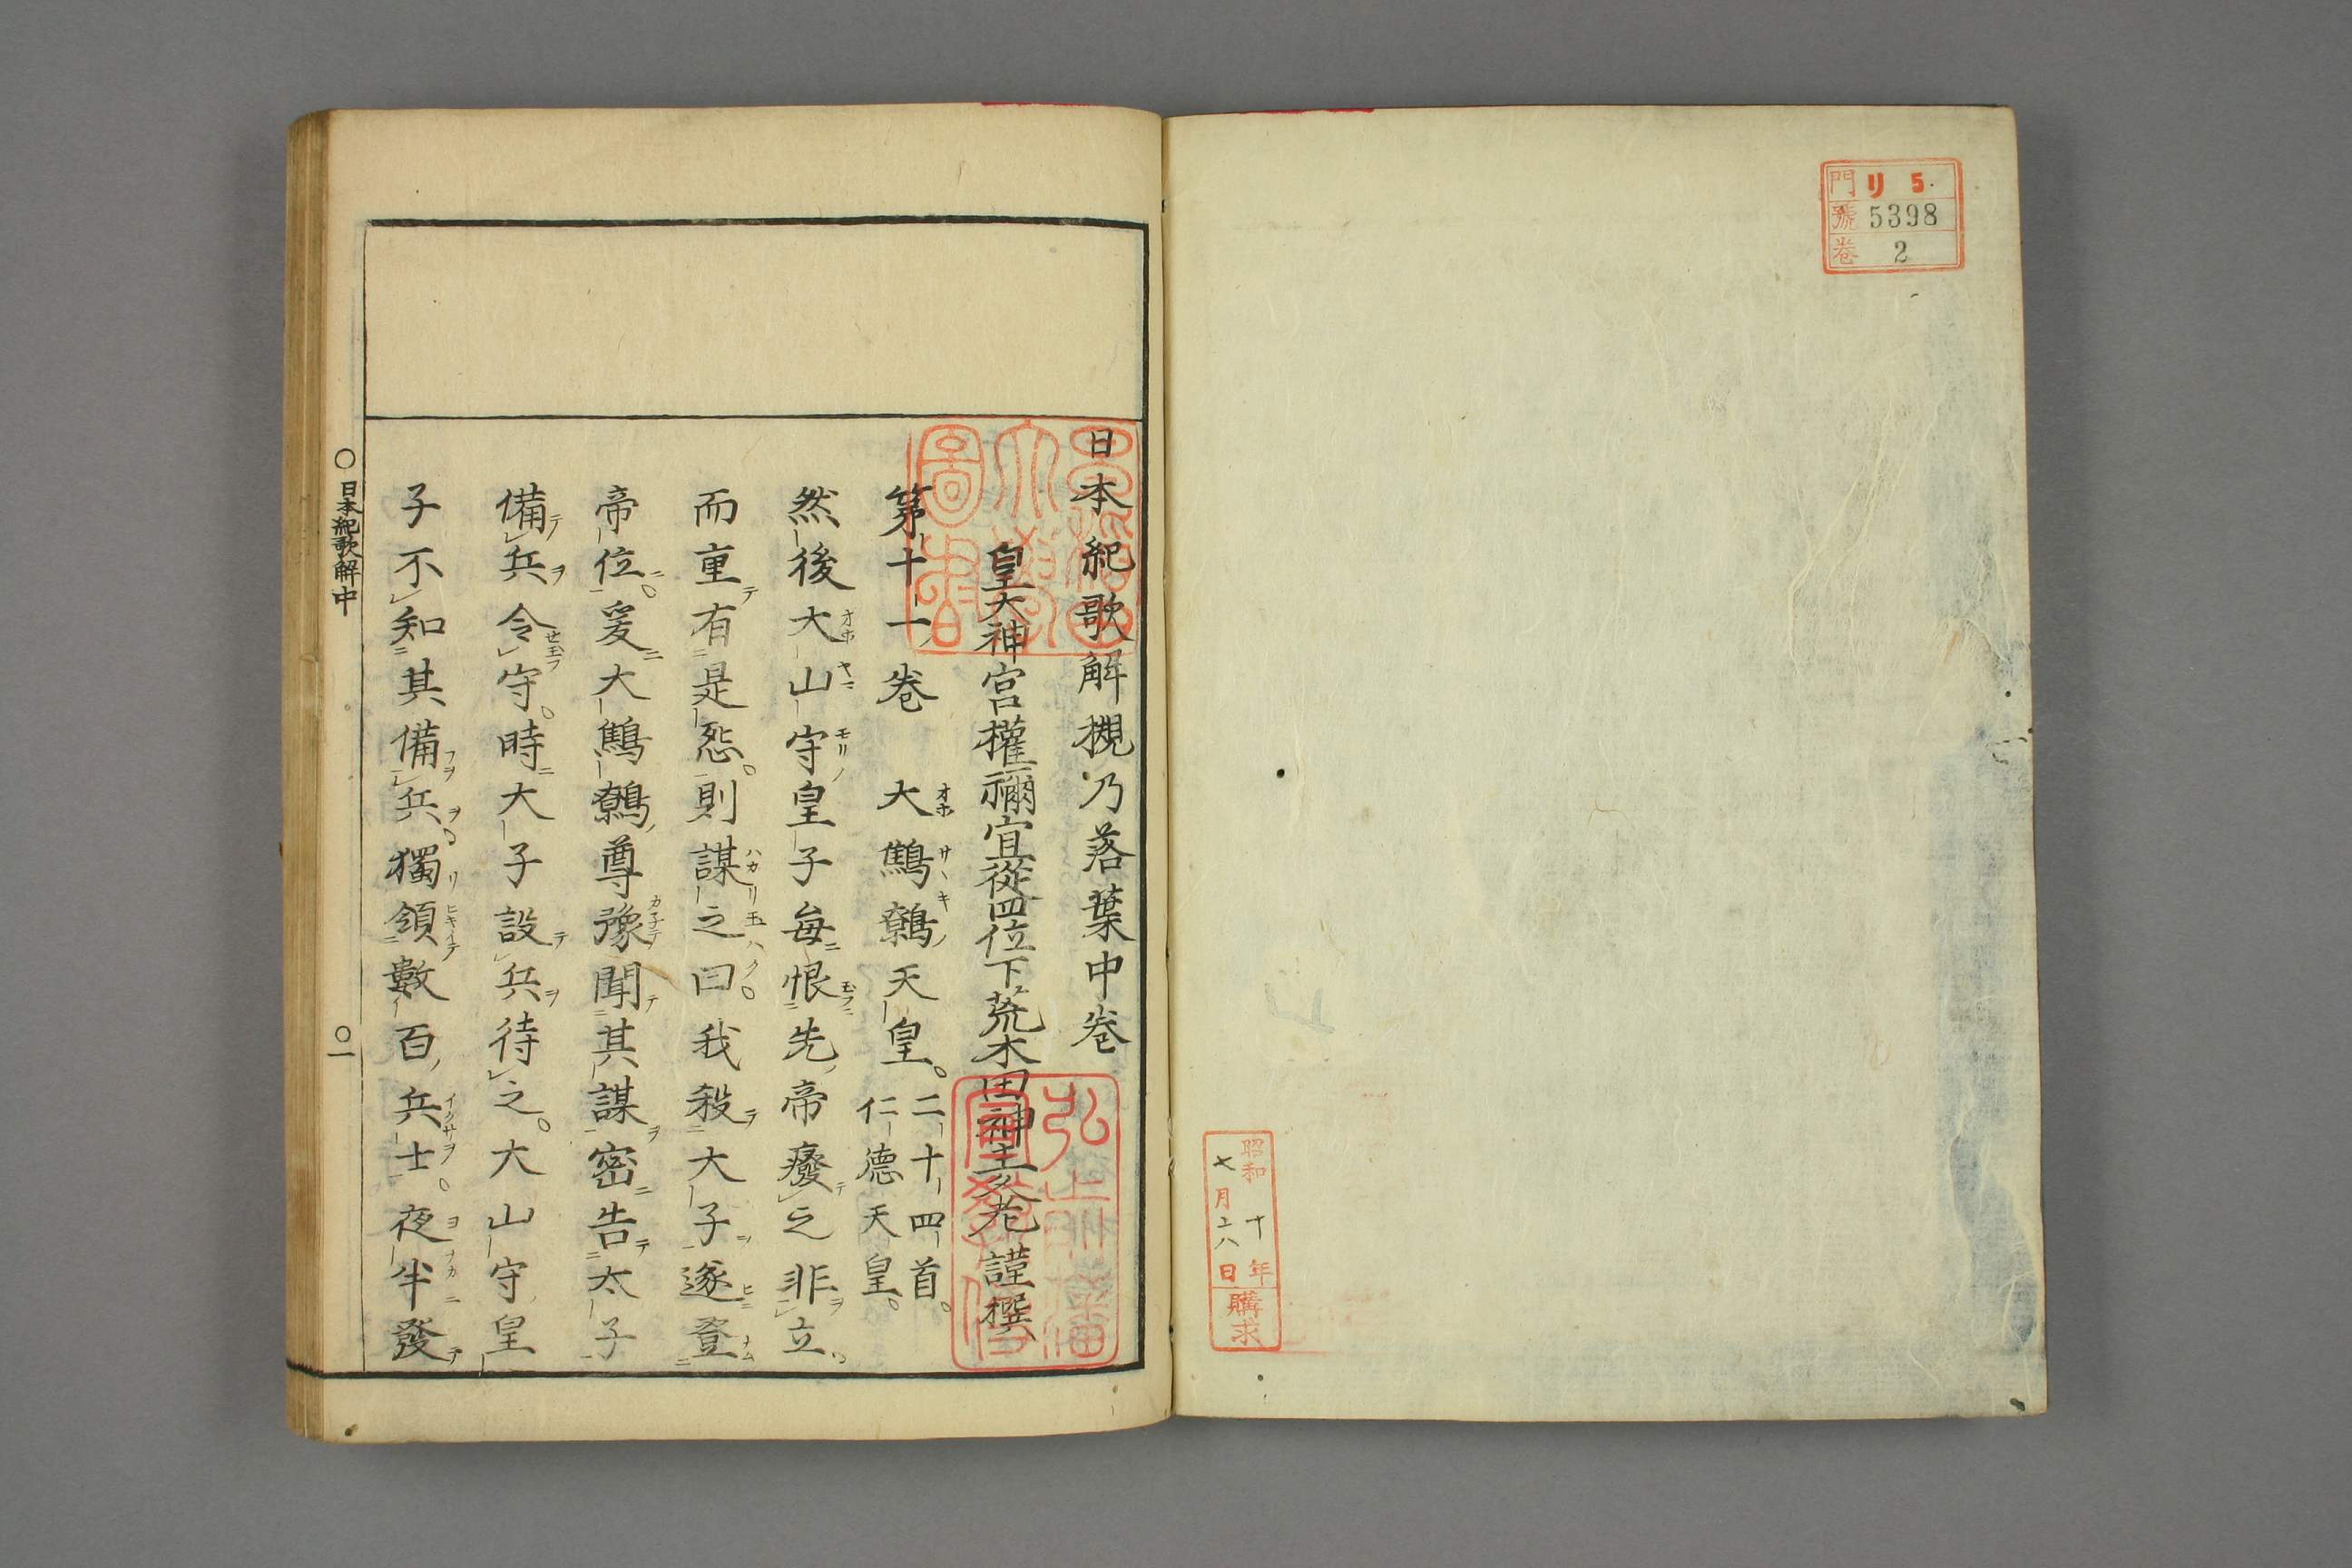 門 リ 5
號 5398
卷 2
昭和十年
七月二八日
購求
日本紀歌解槻乃落葉中卷
皇大神宮權禰宜從四位下荒木田神主久老謹撰
第十一卷　大鷦鷯天皇。二十四首。
仁德天皇。
然後大山守皇子每恨先帝癈之非立。
而重有是怨。則謀之曰。我殺大子遂登
帝位。爰大鷦鷯尊豫聞其謀密告太子
備兵令守。時大子設兵待之。大山守皇
子不知其備兵。獨領數百兵士。夜半發
○日本紀歌解中
○一